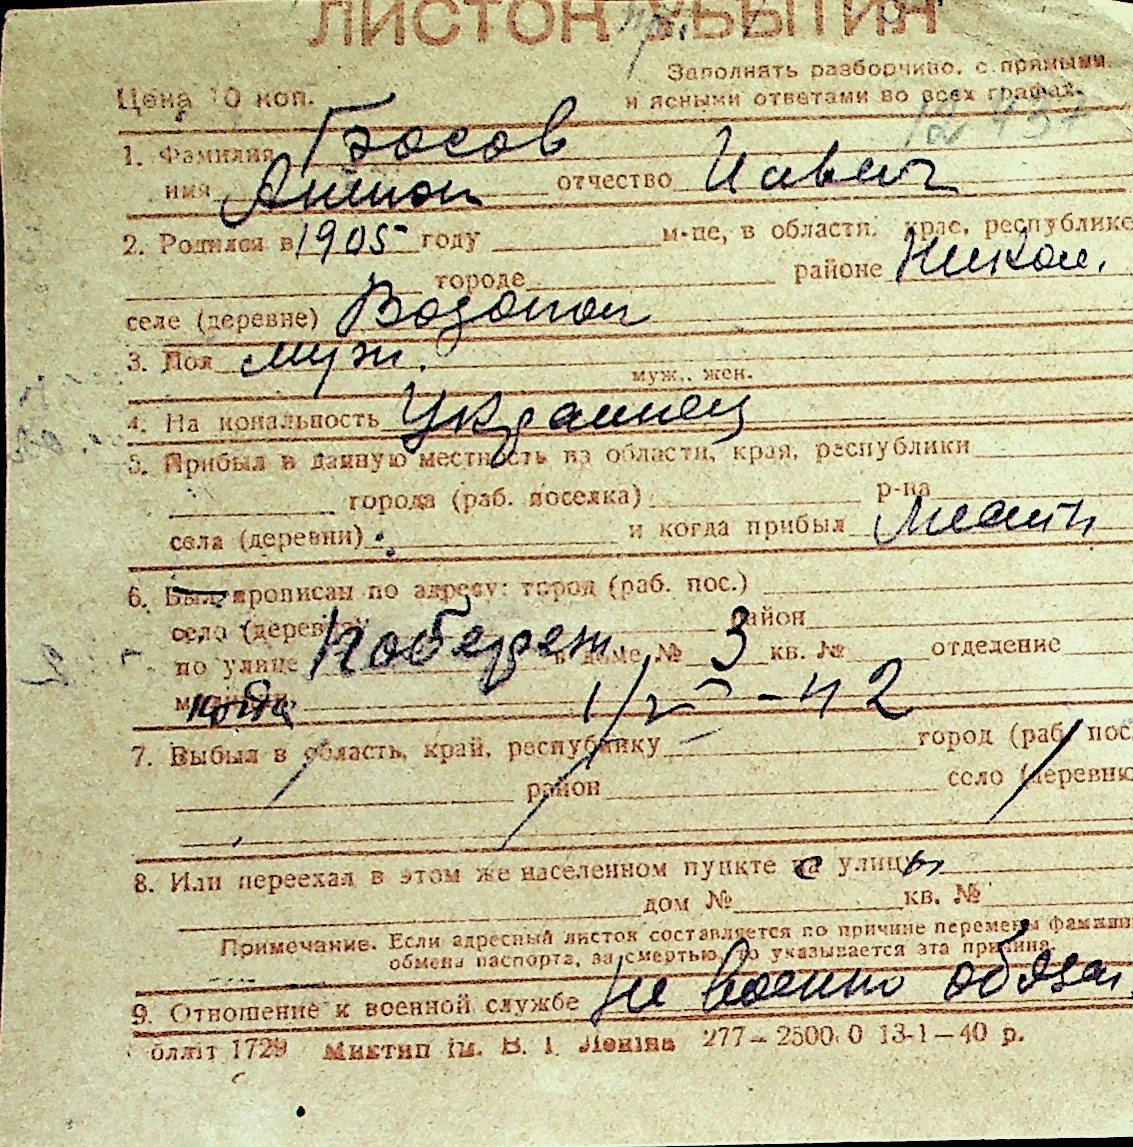 ЛИСТОК УБЫТИЯ
Заполнять разборчиво, с прямыми
Цена 10 коп.
и ясными ответами во всех графах.
1. Фамилия Басов
имя Антон отчество
2. Родился в 1905 году м-це, в области, крае, республике
городе районе Никол.
селе (деревне) Водопой
3. Пол муж.
муж., жен.
4. Национальность Украинец
5. Прибыл в данную местность из области, края, республики
города (раб. поселка) р-на
села (деревни) и когда прибыл местн
6. Был прописан по адресу: город (раб. пос.)
село (деревня) район
по улице Побереж. в доме № 3 кв. № отделение
милиции
7. Выбыл в область, край, республику город (раб. пос.
район село (деревню
8. Или переехал в этом же населенном пункте с улицы
дом № кв. №
Примечание. Если адресный листок составляется по причине перемены фамилии
обмена паспорта, за смертью, то указывается эта причина.
9. Отношение к военной службе Не военно обязан.
блліт 1729 Миктип ім. В. І. Леніна 277–2500.0 13-1–40 р.